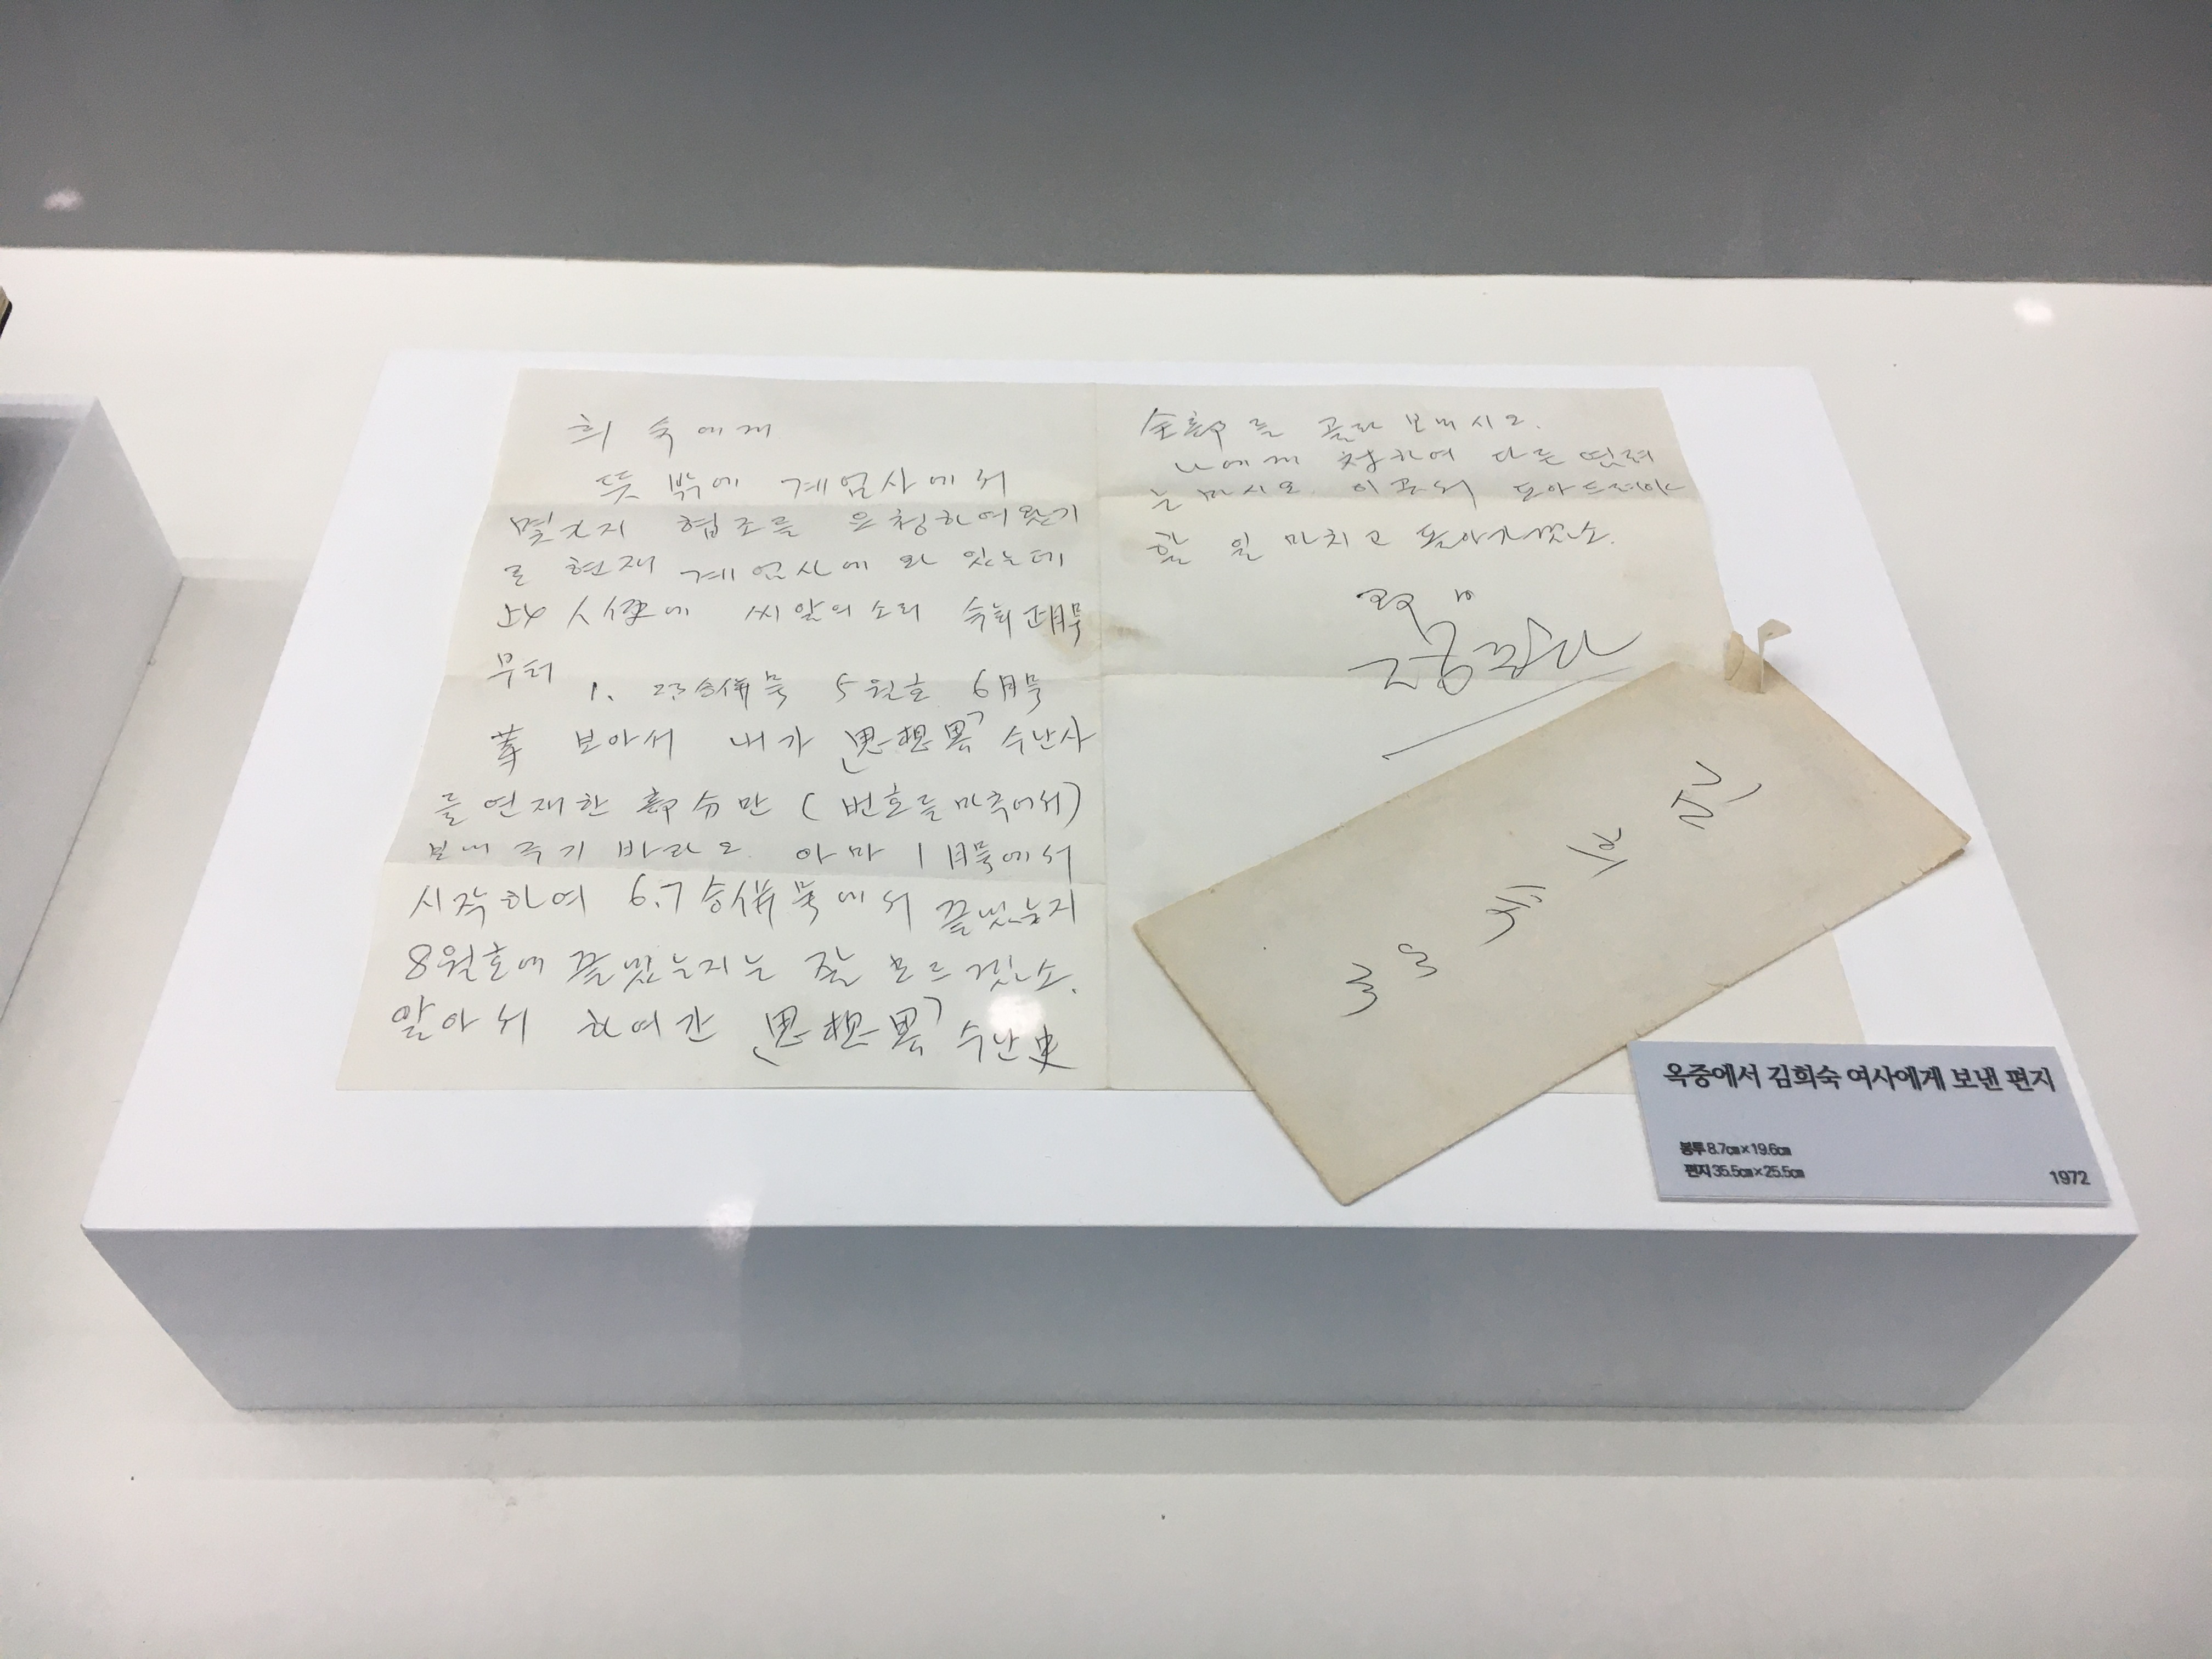 희숙에게
뜻밖에 계엄사에서
몇가지 협조를 요청하여 왔기
로 현재 계엄사에 와 있는데
씨알의 소리
부터 1. 23合倂号 5월호 6月号
보아서 내가 「思想界」 수난사
를 연재한 部分만 (번호를 마추어서)
보내 주기 바라오. 아마 1月号에서
시작하여 6.7合倂号에서 끝났는지
8월호에 끝났는지는 잘 모르겠소.
알아서 하여간 「思想界」 수난史
全部를 골라 보내시오.
나에게 하여 다른 염려
는 마시오.
할 일 마치고 돌아가겠소.
옥중에서 김희숙 여사에게 보낸 편지
봉투 8.7㎝×19.6㎝
편지 35.5㎝×25.5㎝
1972